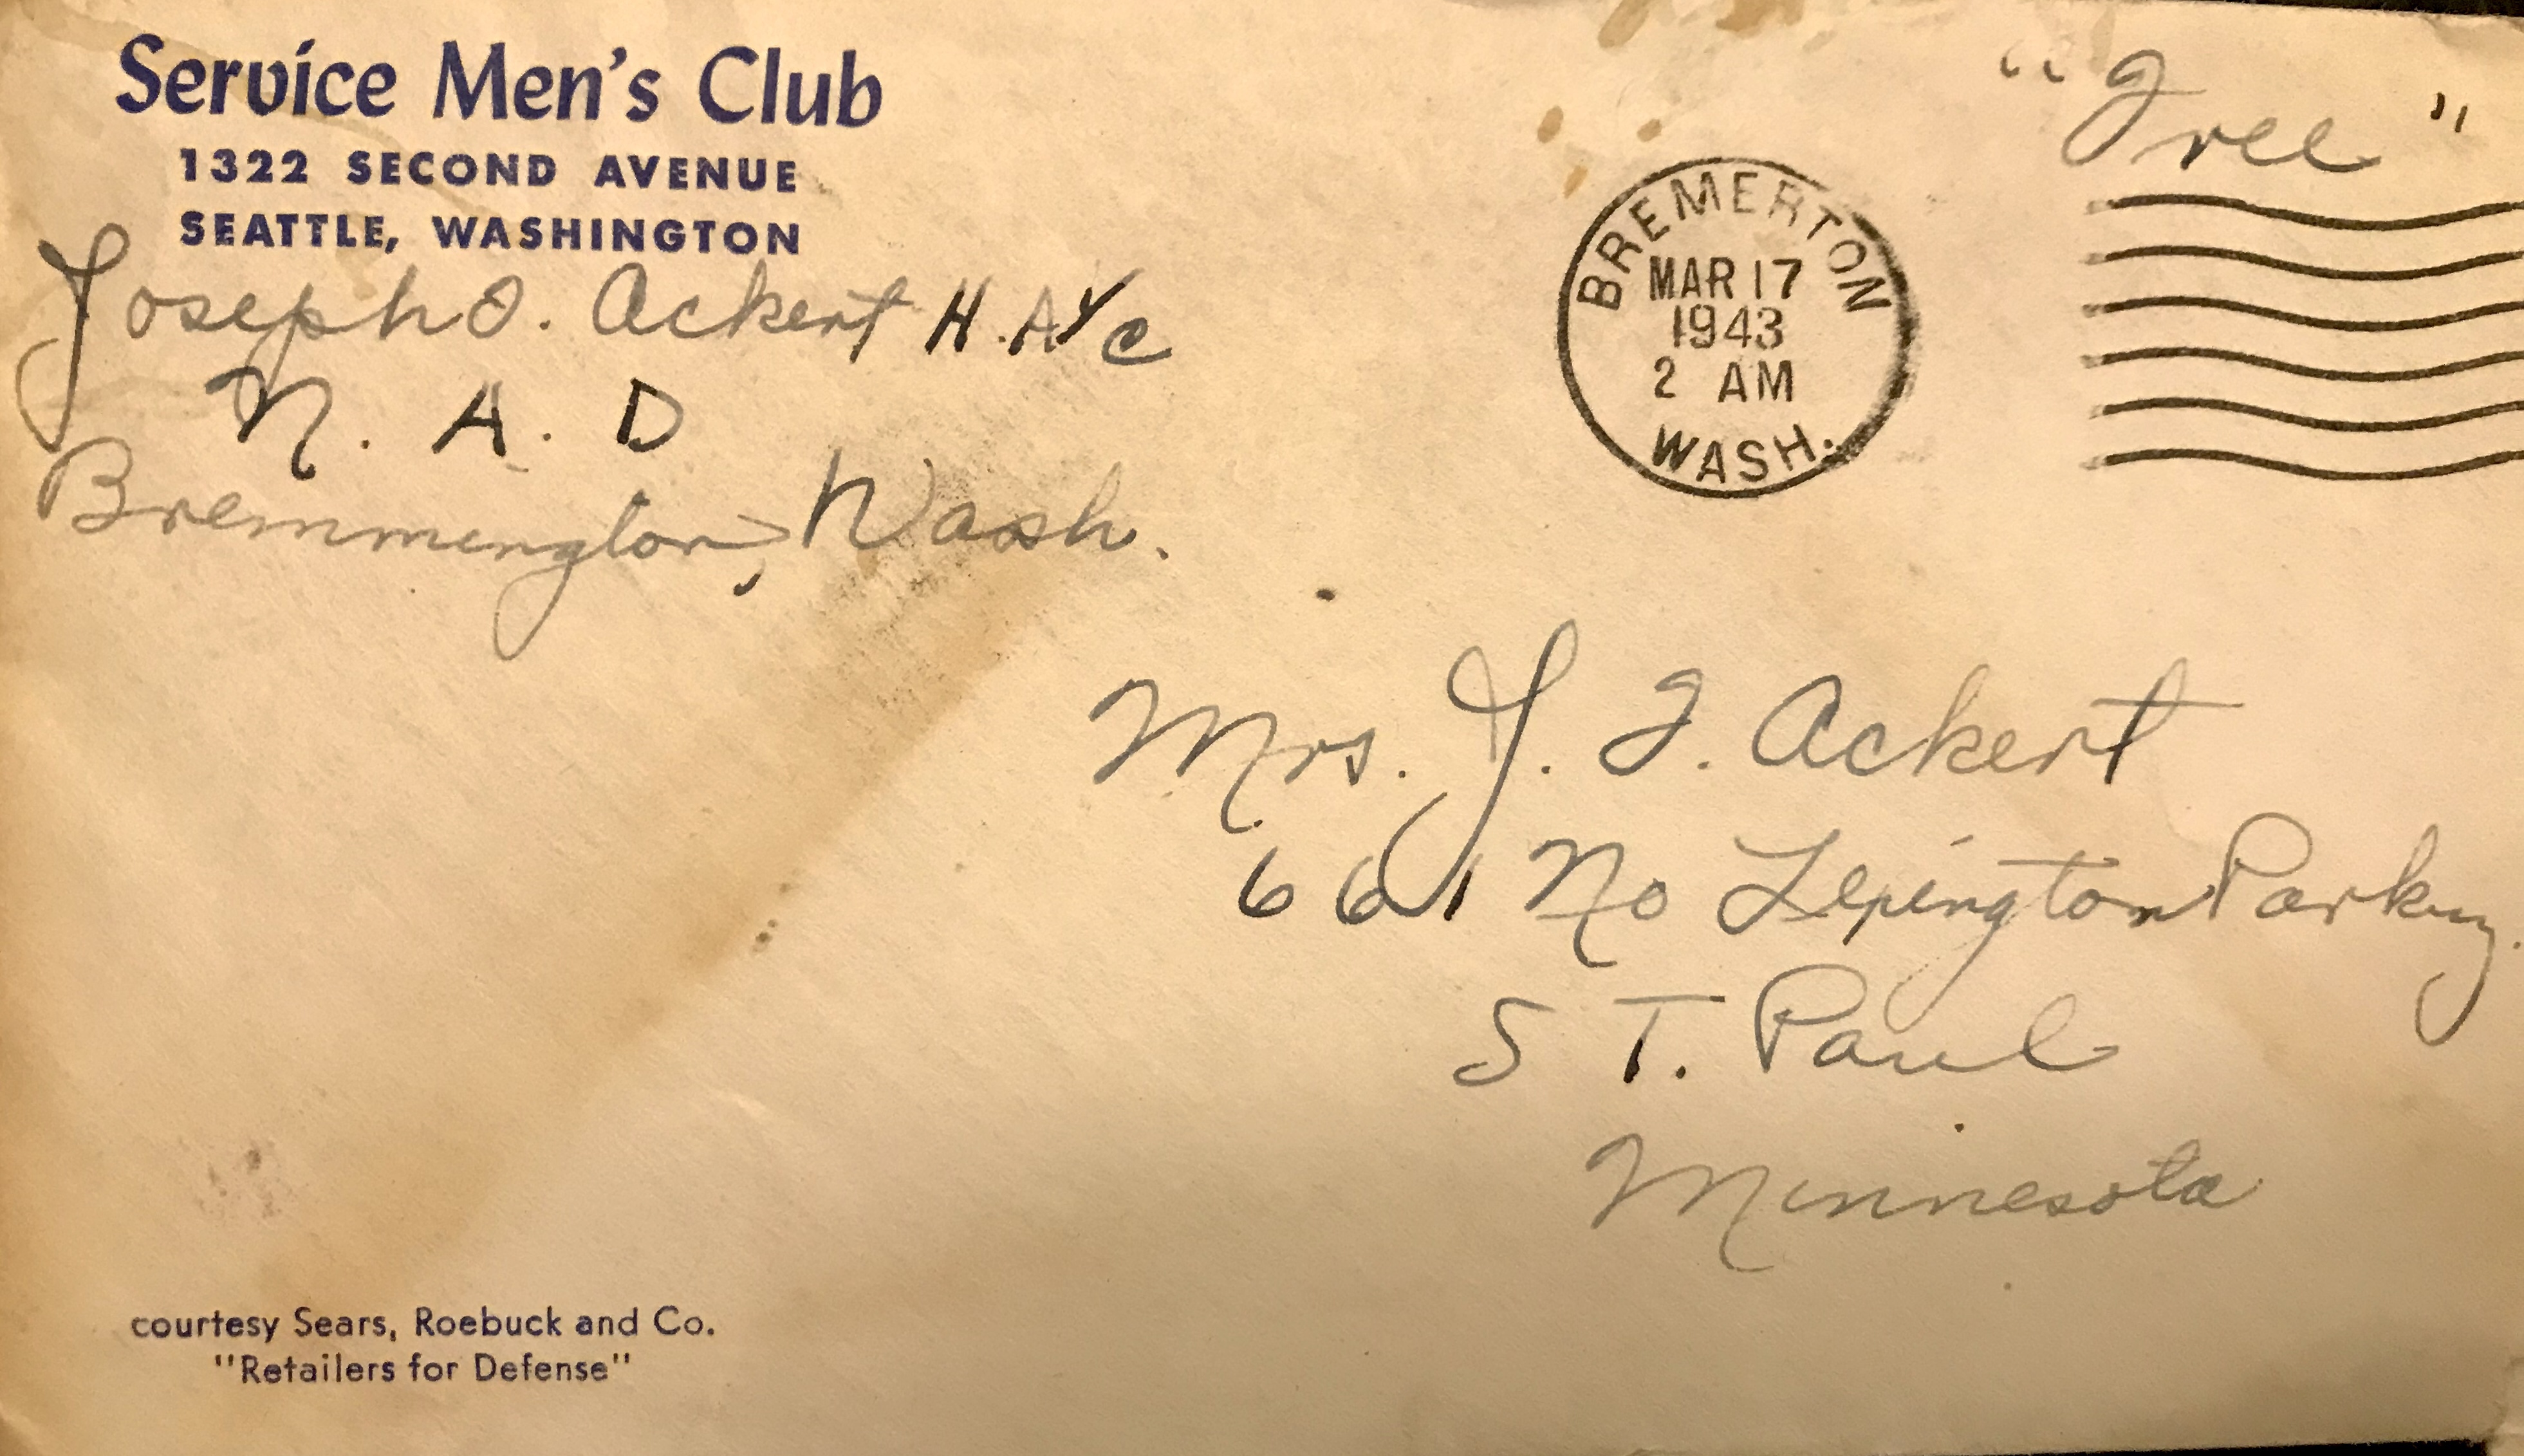 Service Men's Club
1322 SECOND AVENUE
SEATTLE, WASHINGTON
Joseph J. Ackert H.A.
N. A. D
Bremmington, Wash.
"Free"
BREMERTON
MAR 17
1943
2 AM
WASH.
Mrs. J. J. Ackert
661 No Lexington Parkwy.
ST. Paul
Minnesota
courtesy Sears, Roebuck and Co.
"Retailers for Defense"